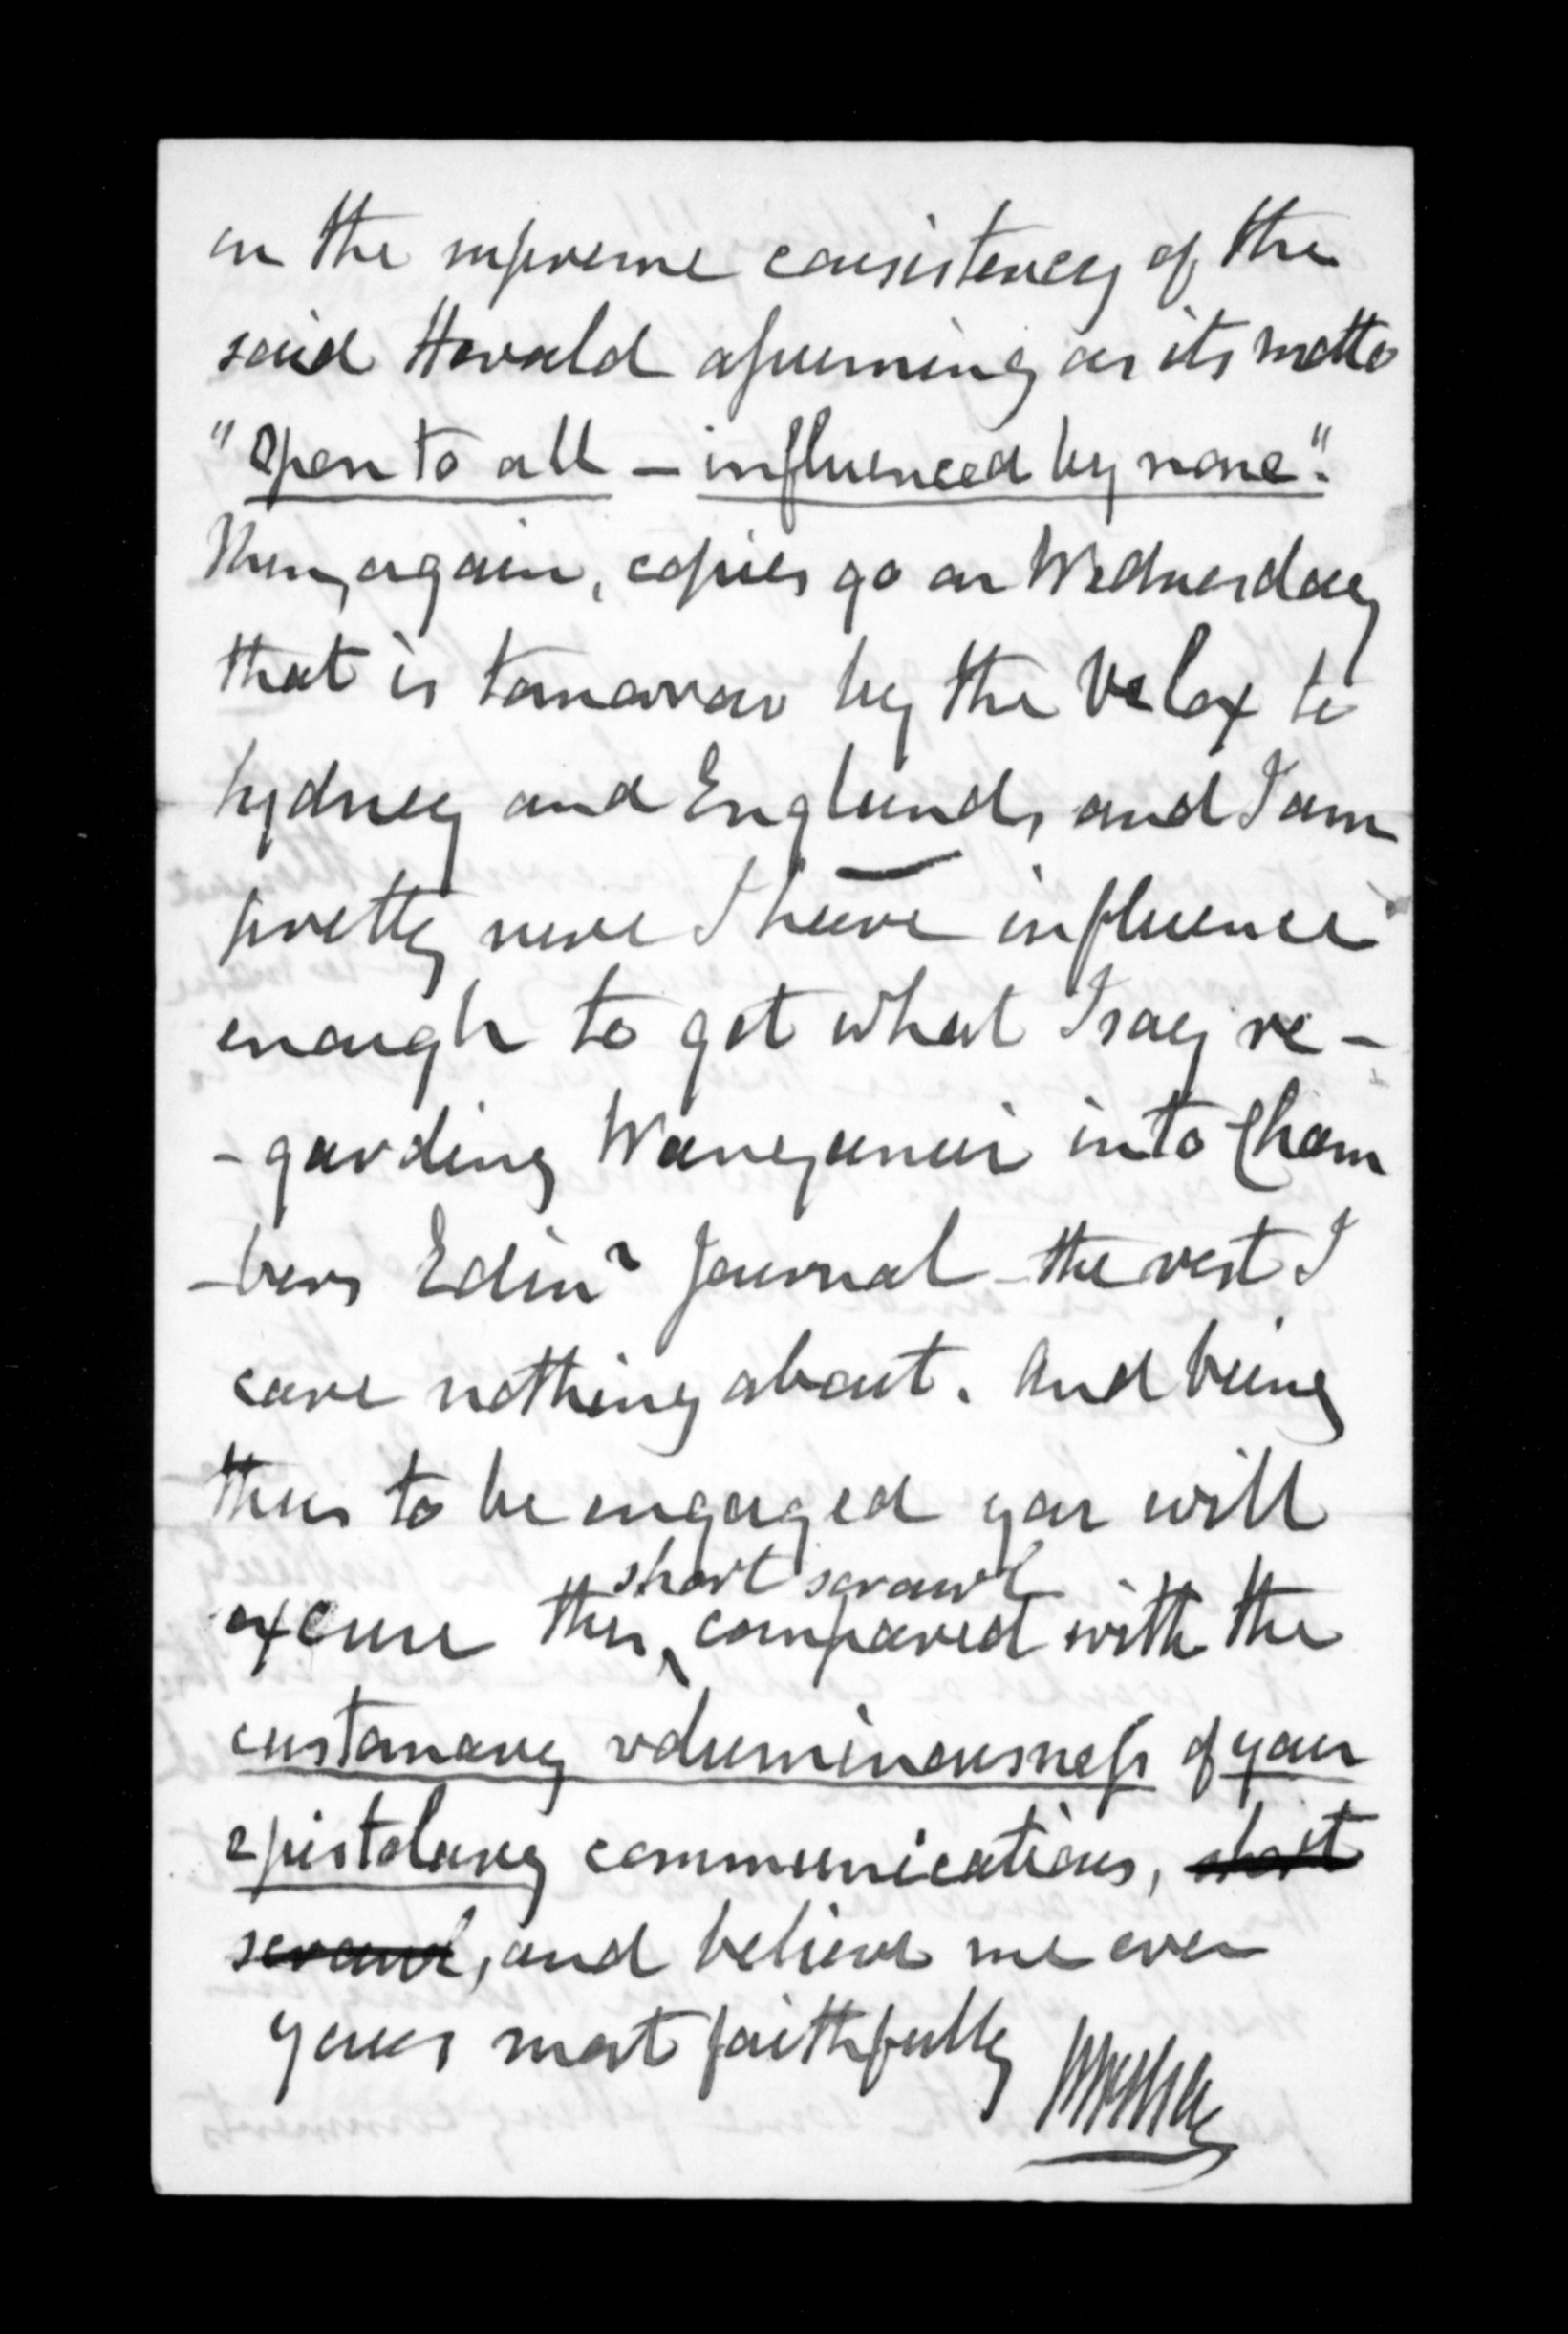 on the supreme consistency of the
said Herald assuming as its motto
"Open to all – influenced by none".
Then, again, copies go on Wednesday
that is tomorrow by the Velox to
Sydney and England, and I am
pretty sure I have influence
enough to get what I say re-
-garding Wanganui into Cham
-bers Edinr Journal – the rest I
care nothing about. And being
thus to be engaged you will
short scrawl
excuse this, compared with the
customary voluminousness of your
epistolary communications, short
scrawl, and believe me ever
yours most faithfully